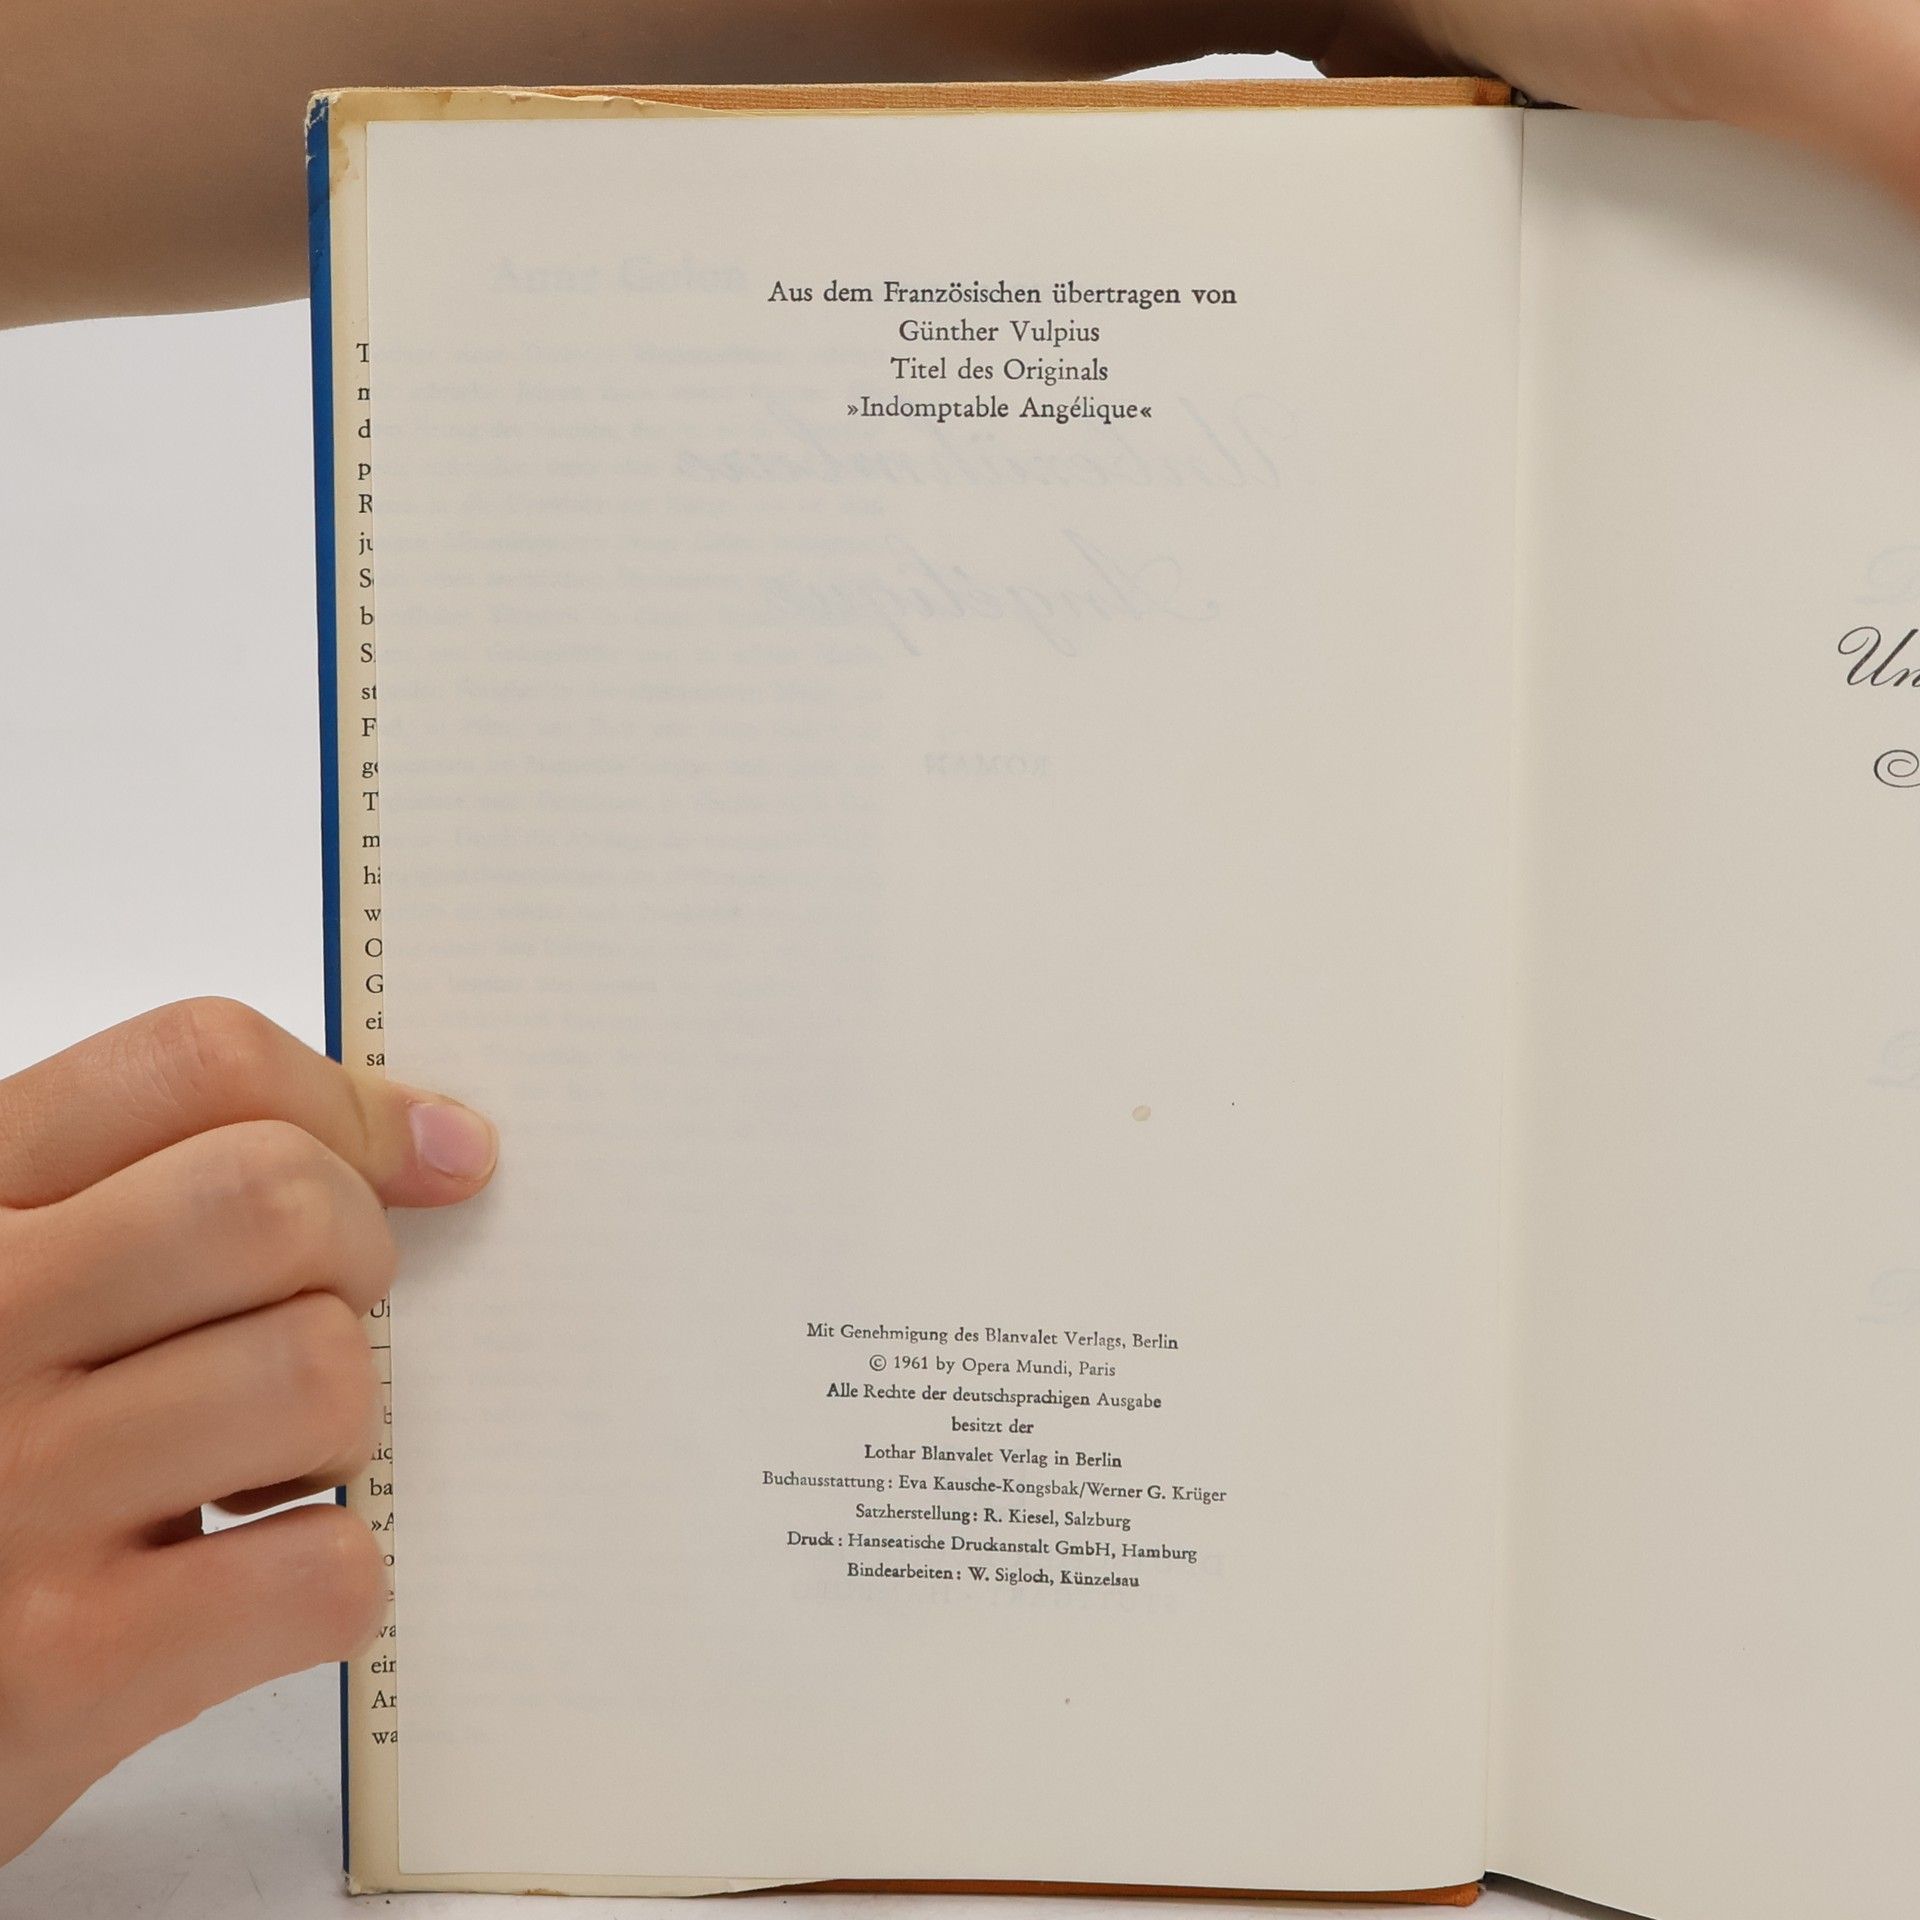 Aus dem Französischen übertragen von
Günther Vulpius
Titel des Originals
»Indomptable Angélique«
Mit Genehmigung des Blanvalet Verlags, Berlin
© 1961 by Opera Mundi, Paris
Alle Rechte der deutschsprachigen Ausgabe
besitzt der
Lothar Blanvalet Verlag in Berlin
Buchausstattung: Eva Kausche-Kongsbak/Werner G. Krüger
Satzherstellung: R. Kiesel, Salzburg
Druck: Hanseatische Druckanstalt GmbH, Hamburg
Bindearbeiten: W. Sigloch, Künzelsau